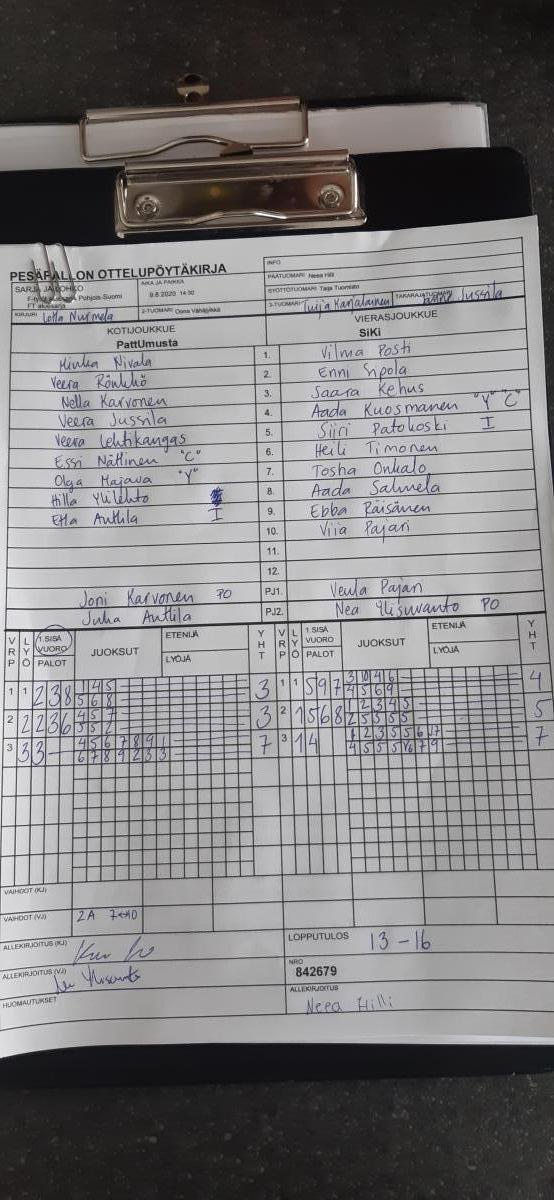 PESÄPALLON OTTELUPÖYTÄKIRJA
INFO
SARJA JA LOHKO
Pohjois-Suomi
AIKA JA PAIKKA
9.8.2020 14:30
PÄÄTUOMARI Neea Hilli
SYÖTTÖTUOMARI Taija Tuomisto
KIRJURI Lotta Nurmela
2-TUOMARI Oona Vähäjylkkä
3-TUOMARI Tuija Karjalainen
TAKARAJATUOMARI Jussila
KOTIJOUKKUE
VIERASJOUKKUE
PattUmusta
SiKi
Minka Nivala 1. Vilma Posti
Veera Rönkkö 2. Enni Sipola
Nella Karvonen 3. Saara Kehus
Veera Jussila 4. Aada Kuosmanen "Y" "C"
Veera Lehtikangas 5. Siiri Patokoski I
Essi Nättinen "C" 6. Heili Timonen
Olga Majava "Y" 7. Tosha Onkalo
Hilla Ylilehto 8. Aada Salmela
Etta Anttila I 9. Ebba Räisänen
10. Viia Pajari
11.
12.
Joni Karvonen PO PJ1. Veula Pajari
Juha Anttila PJ2. Nea Ylisuvanto PO
VRP LYÖ 1.SISÄ VUORO PALOT JUOKSUT ETENIJÄ LYÖJÄ YHT VRP LYÖ 1.SISÄ VUORO PALOT JUOKSUT ETENIJÄ LYÖJÄ YHT
1 1 2 3 8 1 4 5 3 1 1 5 9 7 3 10 4 6 4
5 6 8 4 5 6 9
2 2 2 3 6 4 5 7 3 2 1 5 6 8 1 2 3 4 5 5
5 5 2 2 5 5 5 5
3 3 3 4 5 6 7 8 9 1 7 3 1 4 1 2 3 5 5 6 7
6 7 8 9 2 3 3 4 5 5 5 6 7 9
VAIHDOT (KJ)
VAIHDOT (VJ) 2A 7↔10
ALLEKIRJOITUS (KJ)
LOPPUTULOS 13-16
ALLEKIRJOITUS (VJ)
NRO
842679
HUOMAUTUKSET
ALLEKIRJOITUS
Neea Hilli